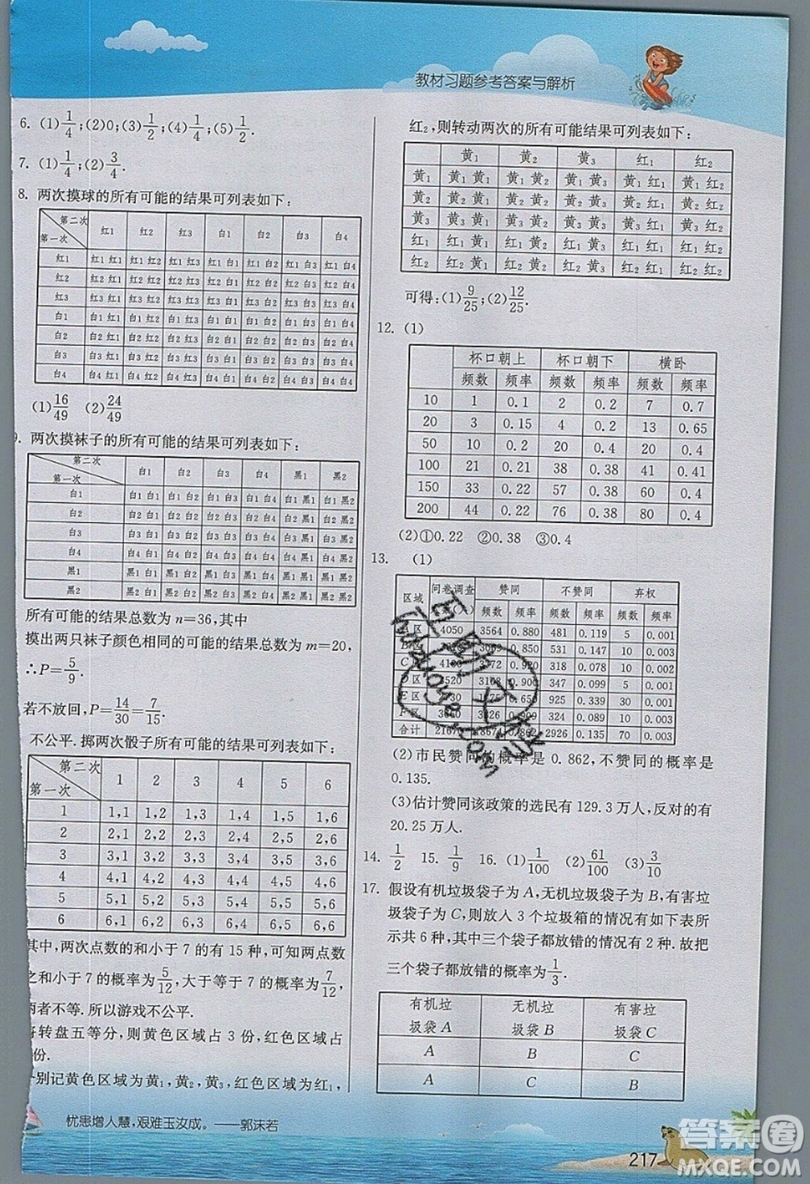 教材习题参考答案与解析
6. (1)1/4;(2)0;(3)1/2;(4)1/4;(5)1/2.
7. (1)1/4;(2)3/4.
8. 两次摸球的所有可能的结果可列表如下:
第二次 第一次 红1 红2 红3 白1 白2 白3 白4
红1 红1 红1 红1 红2 红1 红3 红1 白1 红1 白2 红1 白3 红1 白4
红2 红2 红1 红2 红2 红2 红3 红2 白1 红2 白2 红2 白3 红2 白4
红3 红3 红1 红3 红2 红3 红3 红3 白1 红3 白2 红3 白3 红3 白4
白1 白1 红1 白1 红2 白1 红3 白1 白1 白1 白2 白1 白3 白1 白4
白2 白2 红1 白2 红2 白2 红3 白2 白1 白2 白2 白2 白3 白2 白4
白3 白3 红1 白3 红2 白3 红3 白3 白1 白3 白2 白3 白3 白3 白4
白4 白4 红1 白4 红2 白4 红3 白4 白1 白4 白2 白4 白3 白4 白4
(1)16/49 (2)24/49
9. 两次摸袜子的所有可能的结果可列表如下:
第二次 第一次 白1 白2 白3 白4 黑1 黑2
白1 白1 白1 白1 白2 白1 白3 白1 白4 白1 黑1 白1 黑2
白2 白2 白1 白2 白2 白2 白3 白2 白4 白2 黑1 白2 黑2
白3 白3 白1 白3 白2 白3 白3 白3 白4 白3 黑1 白3 黑2
白4 白4 白1 白4 白2 白4 白3 白4 白4 白4 黑1 白4 黑2
黑1 黑1 白1 黑1 白2 黑1 白3 黑1 白4 黑1 黑1 黑1 黑2
黑2 黑2 白1 黑2 白2 黑2 白3 黑2 白4 黑2 黑1 黑2 黑2
所有可能的结果总数为 n=36,其中
摸出两只袜子颜色相同的可能的结果总数为 m=20,
∴P=5/9.
若不放回,P=14/30=7/15.
不公平. 掷两次骰子所有可能的结果可列表如下:
第二次 第一次 1 2 3 4 5 6
1 1,1 1,2 1,3 1,4 1,5 1,6
2 2,1 2,2 2,3 2,4 2,5 2,6
3 3,1 3,2 3,3 3,4 3,5 3,6
4 4,1 4,2 4,3 4,4 4,5 4,6
5 5,1 5,2 5,3 5,4 5,5 5,6
6 6,1 6,2 6,3 6,4 6,5 6,6
其中,两次点数的和小于 7 的有 15 种,可知两点数
之和小于 7 的概率为5/12,大于等于 7 的概率为7/12,
两者不等. 所以游戏不公平.
将转盘五等分,则黄色区域占 3 份,红色区域占
份.
别记黄色区域为黄1,黄2,黄3,红色区域为红1,
红2,则转动两次的所有可能结果可列表如下:
黄1 黄2 黄3 红1 红2
黄1 黄1 黄1 黄1 黄2 黄1 黄3 黄1 红1 黄1 红2
黄2 黄2 黄1 黄2 黄2 黄2 黄3 黄2 红1 黄2 红2
黄3 黄3 黄1 黄3 黄2 黄3 黄3 黄3 红1 黄3 红2
红1 红1 黄1 红1 黄2 红1 黄3 红1 红1 红1 红2
红2 红2 黄1 红2 黄2 红2 黄3 红2 红1 红2 红2
可得:(1)9/25;(2)12/25.
12. (1)
杯口朝上 杯口朝下 横卧
频数 频率 频数 频率 频数 频率
10 1 0.1 2 0.2 7 0.7
20 3 0.15 4 0.2 13 0.65
50 10 0.2 15 0.3 25 0.5
100 21 0.21 38 0.38 41 0.41
150 33 0.22 57 0.38 60 0.4
200 44 0.22 76 0.38 80 0.4
(2)①0.22 ②0.38 ③0.4
13. (1)
区域 问卷调查 赞同 不赞同 弃权
频数 频率 频数 频率 频数 频率
区 4050 3564 0.880 481 0.119 5 0.001
0.900 5 0.001
C 0.920 318 0.080 10 0.002
区 0.900 329 0.095 15 0.005
区 0.650 925 0.339 30 0.011
区 0.900 339 0.098 5 0.001
合计 2926 0.135 70 0.003
(2)市民赞同的概率是 0.862,不赞同的概率是
0.135.
(3)估计赞同该政策的选民有 129.3 万人,反对的有
20.25 万人.
14. 1/2 15. 1/9 16. (1)1/100 (2)61/100 (3)3/10
17. 假设有机垃圾袋子为 A,无机垃圾袋子为 B,有害垃
圾袋子为 C,则放入 3 个垃圾箱的情况有如下表所
示共 6 种,其中三个袋子都放错的情况有 2 种. 故把
三个袋子都放错的概率为1/3.
有机垃圾袋 A 无机垃圾袋 B 有害垃圾袋 C
A B C
A C B
忧患增人慧,艰难玉汝成。——郭沫若
217
答案圈
MXQE.COM